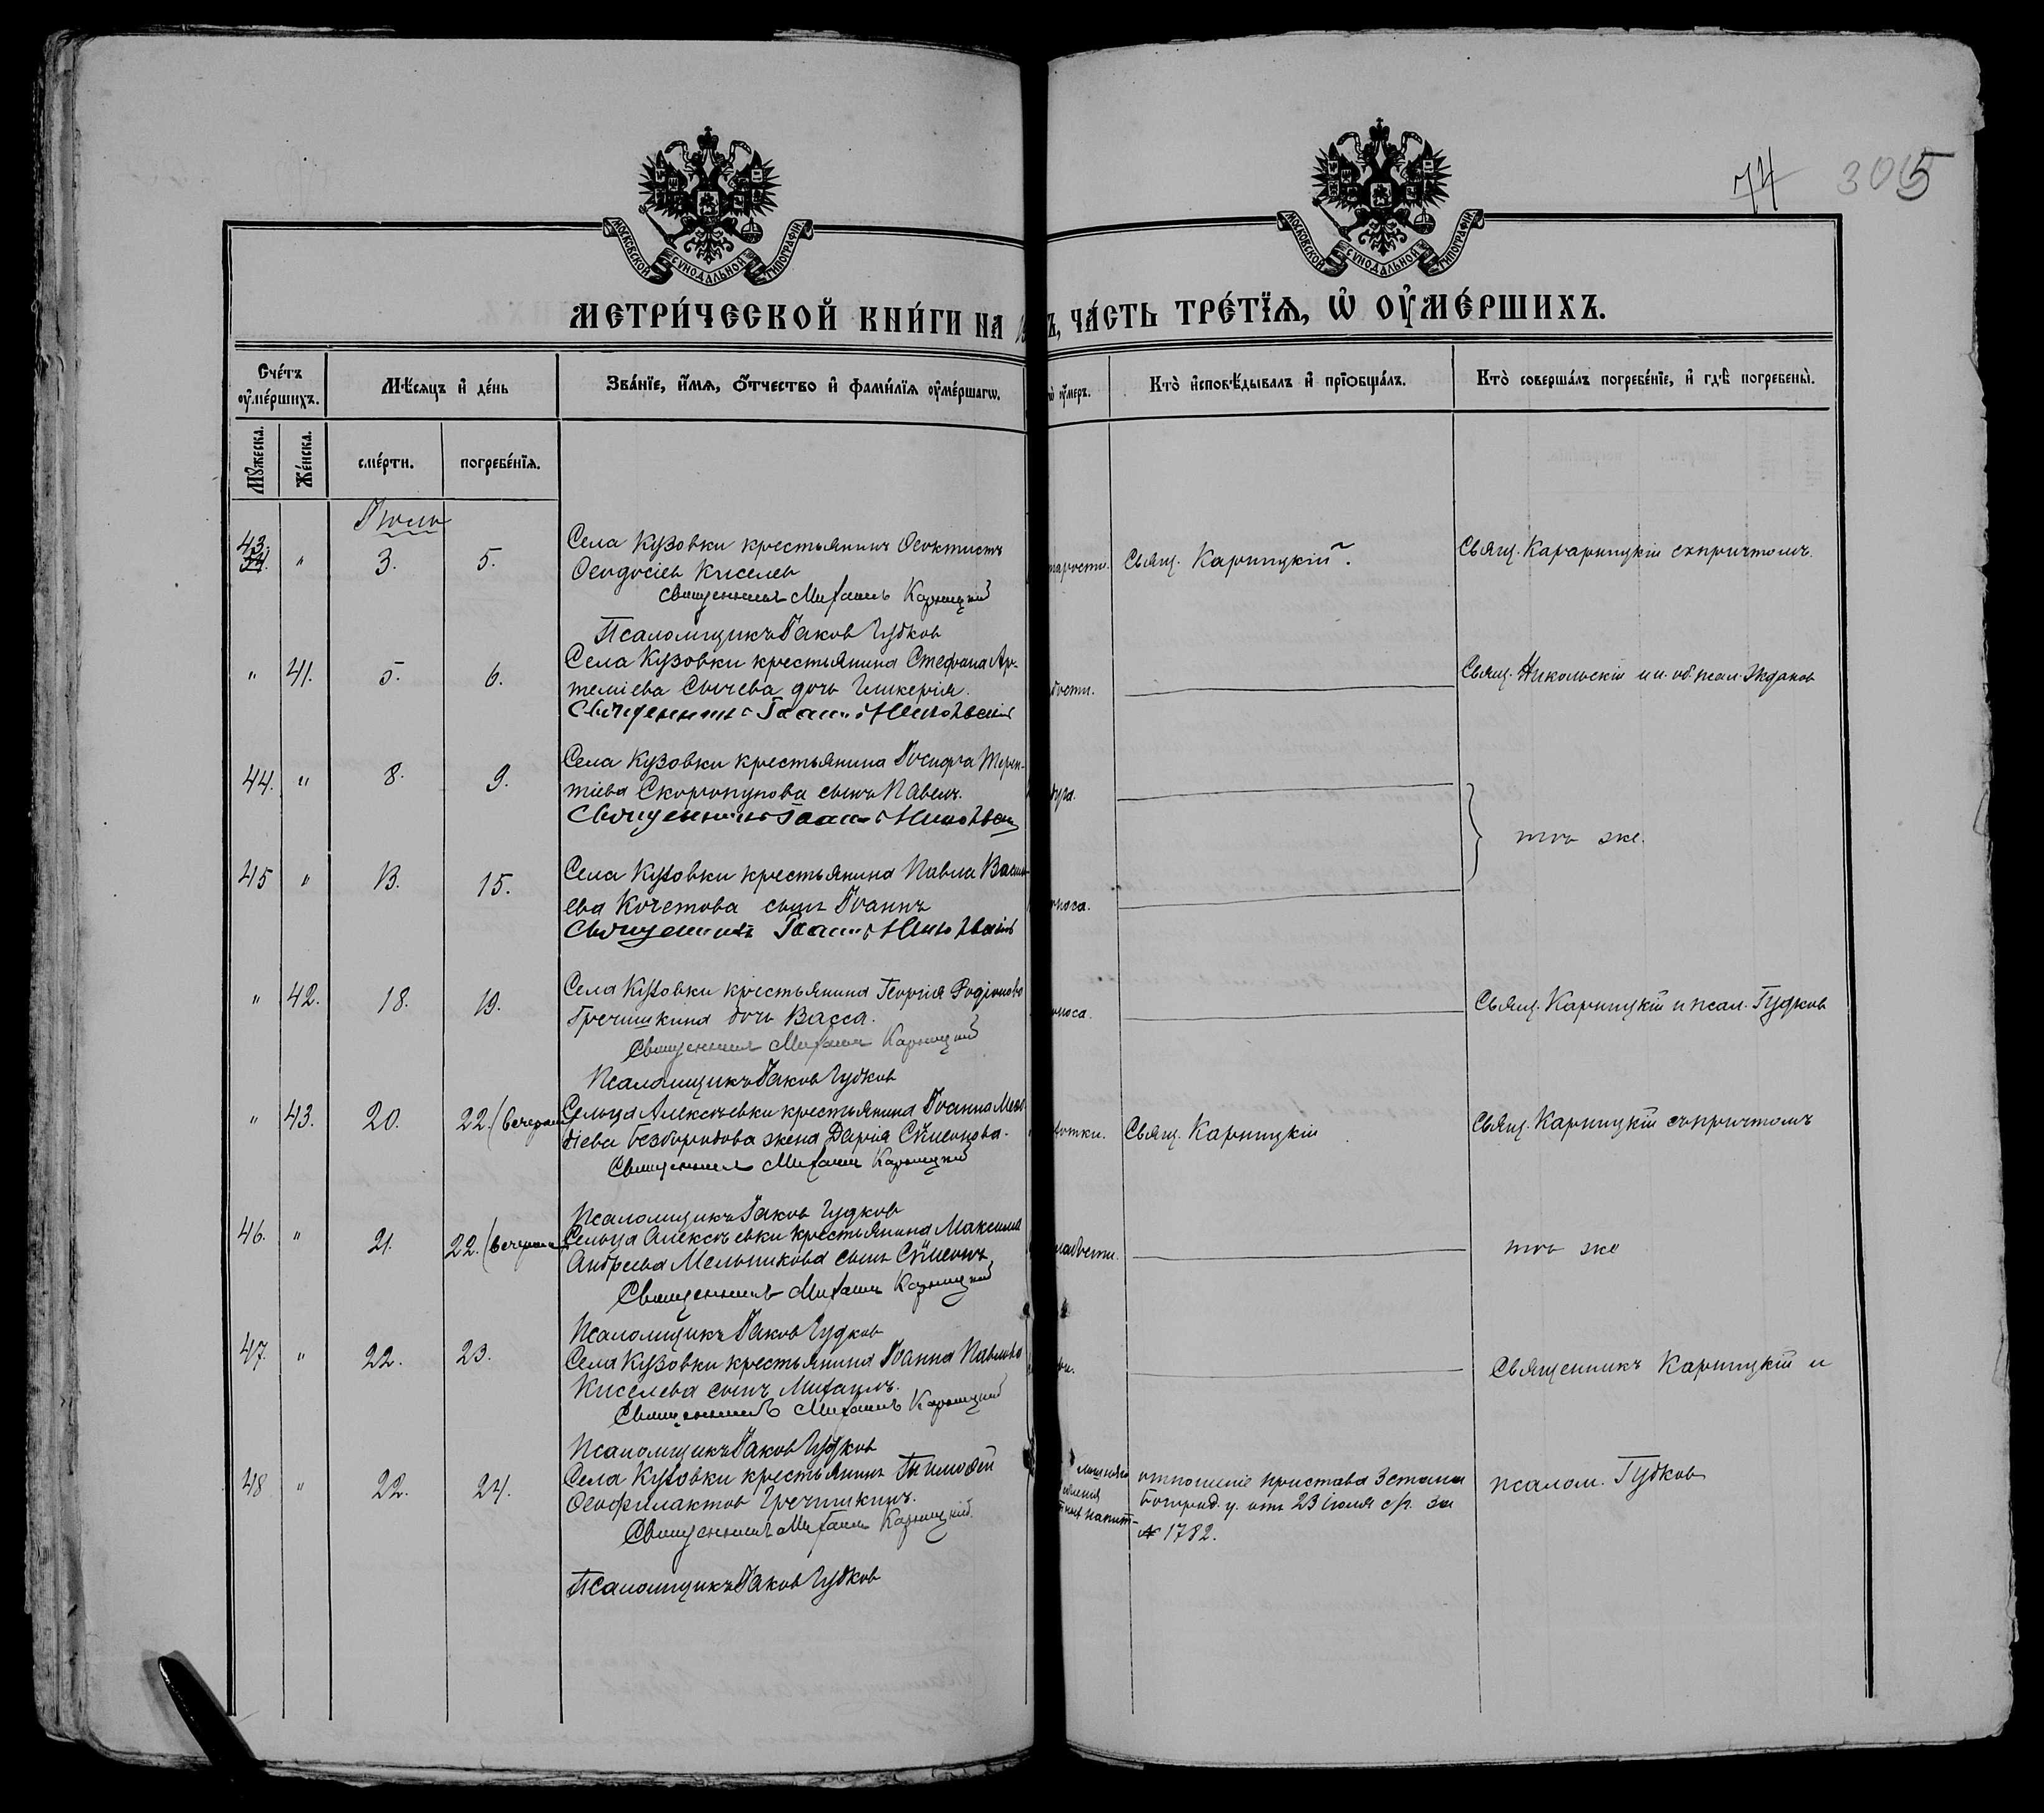 74 305
МОСКОВСКОЙ СѴНОДАЛЬНОЙ ТИПОГРАФІИ
МОСКОВСКОЙ СѴНОДАЛЬНОЙ ТИПОГРАФІИ
МЕТРИ́ЧЕСКОЙ КНИ́ГИ НА
Ъ, ЧА́СТЬ ТРЕ́ТЇѦ, Ѡ҆ ОУ҆МЕ́РШИХЪ.
Сче́тъ оу҆ме́ршихъ.
Мѣ́сяцъ и҆ де́нь
Зва́нїе, и҆́мѧ, ѻ҆́тчество и҆ фами́лїѧ оу҆ме́ршагѡ.
оу҆́меръ.
Кто̀ и҆сповѣ́дывалъ и҆ прїѡбща́лъ.
Кто̀ соверша́лъ погребе́нїе, и҆ гдѣ̀ погребены̀.
Мꙋ́жеска.
Же́нска.
сме́рти.
погребе́нїѧ.
Іюль
43. 54. " 3. 5.
Села Кузовки крестьянинъ Ѳеоктистъ
Ѳеодосіев Киселев
Священникъ Михаилъ Карницкій
Псаломщикъ Іаков Гудков
арости. Свящ. Карницкій. Свящ. Карарницкій съ причтомъ.
" 41. 5. 6.
Села Кузовки крестьянина Стефана Ар-
теміева Сычева дочь Гликерія.
Священникъ Іоаннъ Никольскій
бости. Свящ. Никольскій и и. об. псал. Ждаков
44. " 8. 9.
Села Кузовки крестьянина Іосифа Терен-
тіева Скоропупова сынъ Павелъ.
Священникъ Іоаннъ Никольскій
45 " 13. 15.
тоъ же.
Села Кузовки крестьянина Павла Васил-
ева Кочетова сынъ Іоаннъ
Священникъ Іоаннъ Никольскій
носа.
" 42. 18. 19.
Села Кузовки крестьянина Георгія Родіонова
Гречишкина дочь Васса.
Священникъ Михаилъ Карницкій
Псаломщикъ Іаков Гудков
носа. Свящ. Карницкій и псал. Гудков
" 43. 20. 22.
Сельца Алексѣевки крестьянина Іоанна
діева Безбородова жена Дарія Сѵмеонова.
Священникъ Михаилъ Карницкій
Псаломщикъ Іаков Гудков
отки. Свящ. Карницкій Свящ. Карницкій съ причтомъ
46. " 21. 22.
Сельца Алексѣевки крестьянина Максима
Андреева Мельникова сынъ Сѵмеонъ
Священникъ Михаилъ Карницкій
Псаломщикъ Іаков Гудков
лабости. тоъ же
47. " 22. 23.
Села Кузовки крестьянина Іоанна Павлова
Киселева сынъ Михаилъ.
Священникъ Михаилъ Карницкій
Псаломщикъ Іаков Гудков
Священникъ Карницкій и
48 " 22. 24.
Села Кузовки крестьянинъ Тимоѳей
Ѳеофилактов Гречишкинъ.
Священникъ Михаилъ Карницкій
Псаломщикъ Іаков Гудков
отношеніе пристава 3 стана
Богород. у. отъ 23 іюля с/г. за
№ 1782.
псалом. Гудков